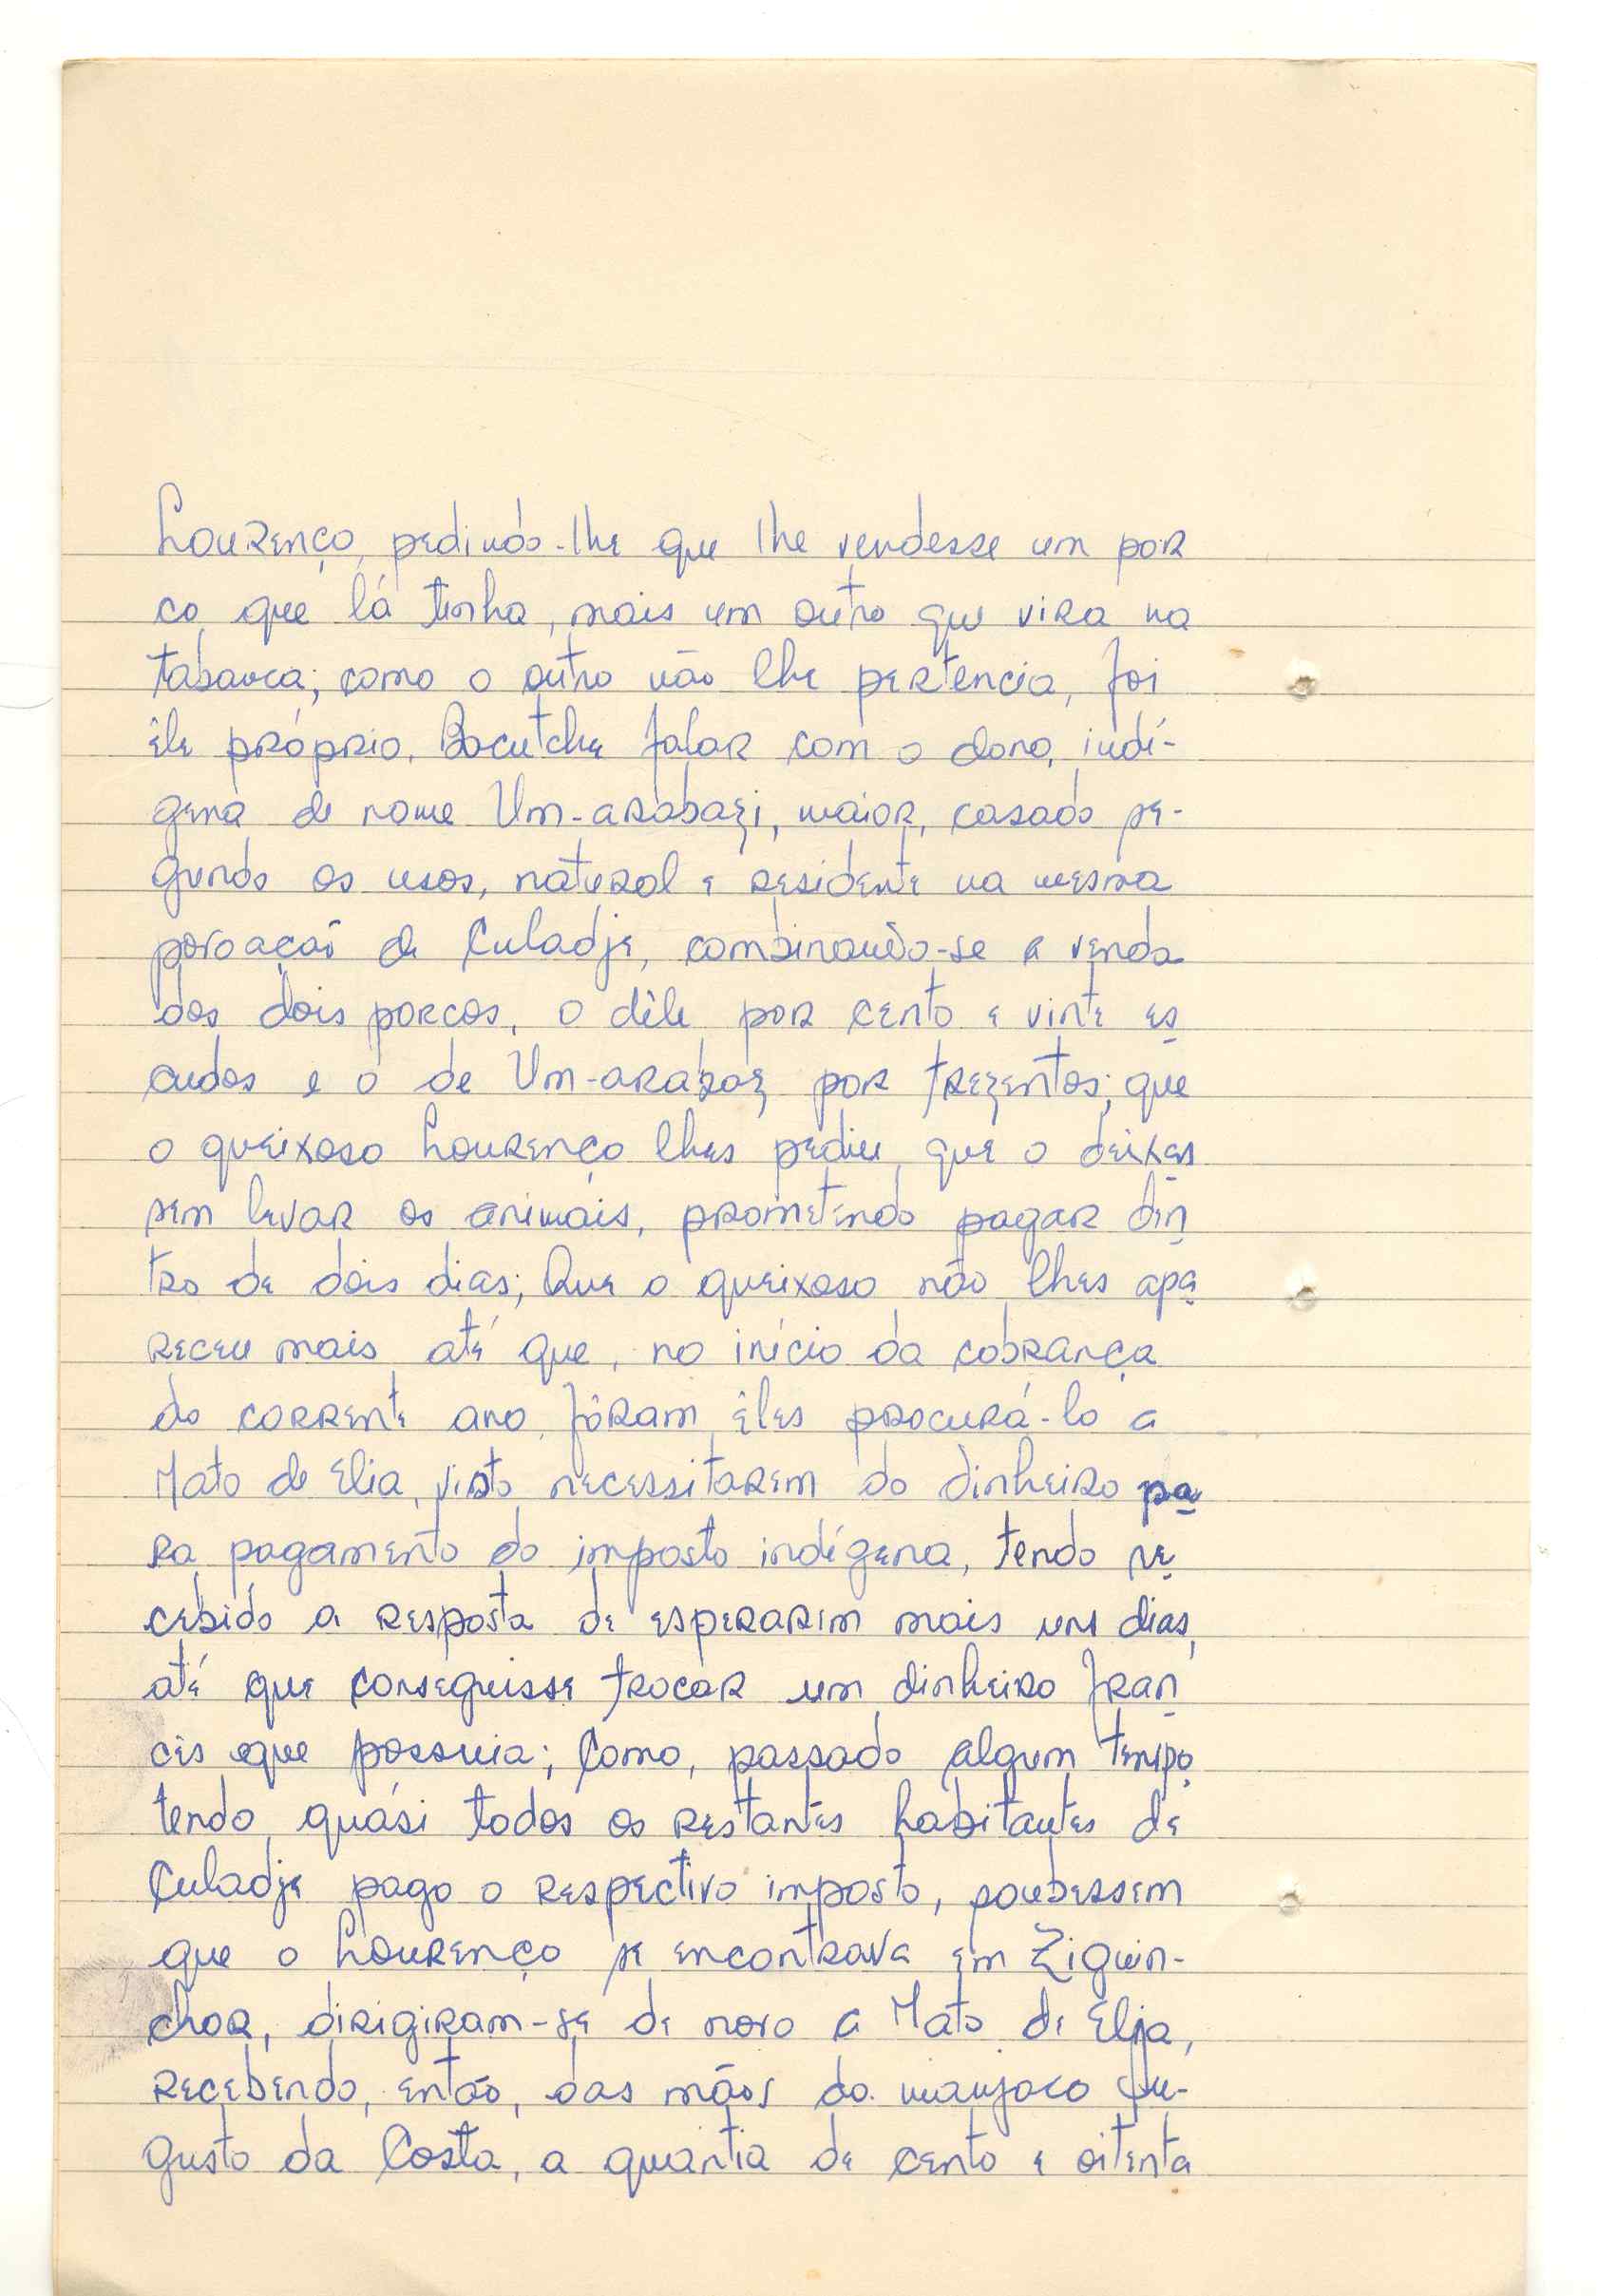 Lourenço, pedindo-lhe que lhe vendesse um por
co que lá tinha, mais um outro que vira na
tabanca; como o outro não lhe pertencia, foi
êle próprio, Bocutche falar com o dono, indí-
gena de nome Um-arabazi, maior, casado se-
gundo os usos, natural e residente na mesma
povoação de Culadje, combinando-se a venda
dos dois porcos, o dêle por cento e vinte es
cudos e o de Um-arabaz por trezentos; que
o queixoso Lourenço lhes pediu que o deixas
sem levar os animais, prometendo pagar den
tro de dois dias; Que o queixoso não lhes apa
receu mais até que, no início da cobrança
do corrente ano, fôram êles procurá-lo a
Mato de Elia, visto necessitarem do dinheiro pa
ra pagamento do imposto indígena, tendo re
cebido a resposta de esperarem mais uns dias,
até que conseguisse trocar um dinheiro fran
cês que possuia; Como, passado algum tempo,
tendo quási todos os restantes habitantes de
Culadje pago o respectivo imposto, soubessem
que o Lourenço se encontrava em Ziguin-
chor, dirigiram-se de novo a Mato de Elia,
recebendo, então, das mãos do manjaco Au-
gusto da Costa, a quantia de cento e oitenta